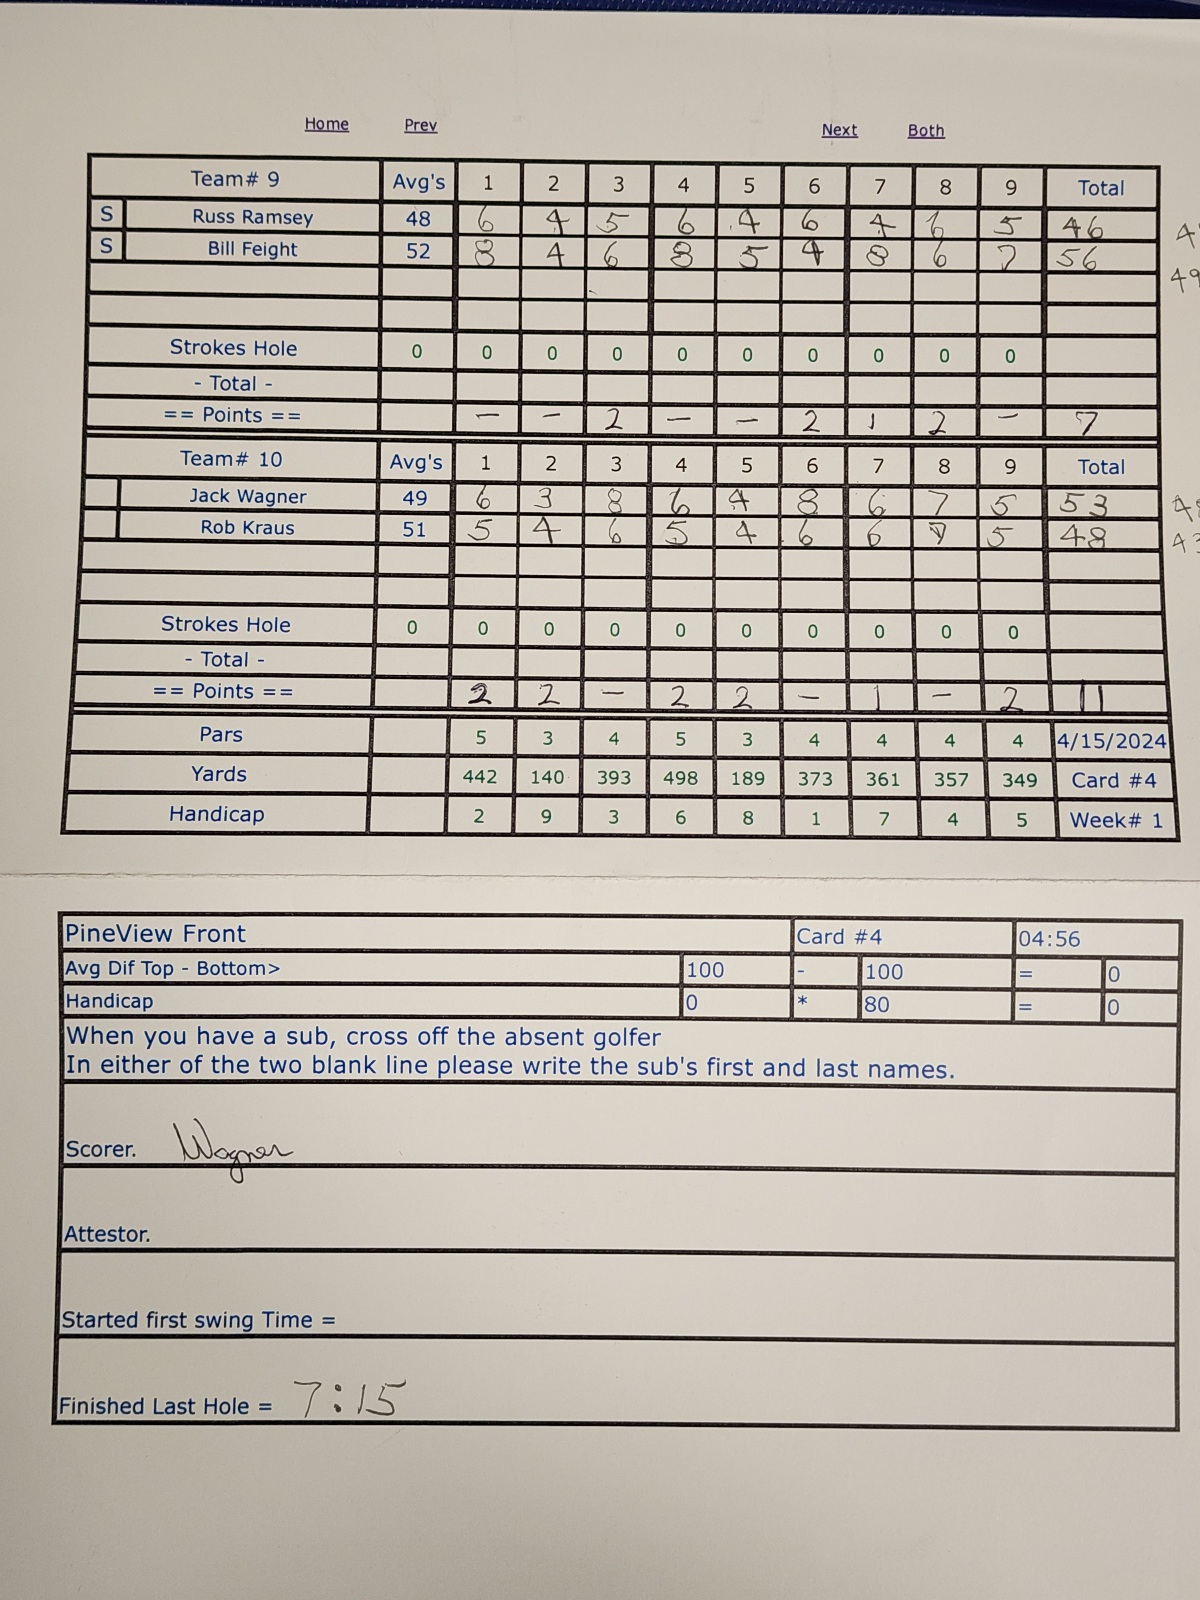 Home Prev Next Both
Team# 9 Avg's 1 2 3 4 5 6 7 8 9 Total
S Russ Ramsey 48 6 4 5 6 4 6 4 6 5 46
S Bill Feight 52 8 4 6 8 5 4 8 6 7 56
49
Strokes Hole 0 0 0 0 0 0 0 0 0 0
- Total -
== Points == — — 2 — — 2 1 2 — 7
Team# 10 Avg's 1 2 3 4 5 6 7 8 9 Total
Jack Wagner 49 6 3 8 6 4 8 6 7 5 53
Rob Kraus 51 5 4 6 5 4 6 6 7 5 48 43
Strokes Hole 0 0 0 0 0 0 0 0 0 0
- Total -
== Points == 2 2 — 2 2 — 1 — 2 11
Pars 5 3 4 5 3 4 4 4 4 4/15/2024
Yards 442 140 393 498 189 373 361 357 349 Card #4
Handicap 2 9 3 6 8 1 7 4 5 Week# 1
PineView Front Card #4 04:56
Avg Dif Top - Bottom> 100 - 100 = 0
Handicap 0 * 80 = 0
When you have a sub, cross off the absent golfer
In either of the two blank line please write the sub's first and last names.
Scorer. Wagner
Attestor.
Started first swing Time =
Finished Last Hole = 7:15